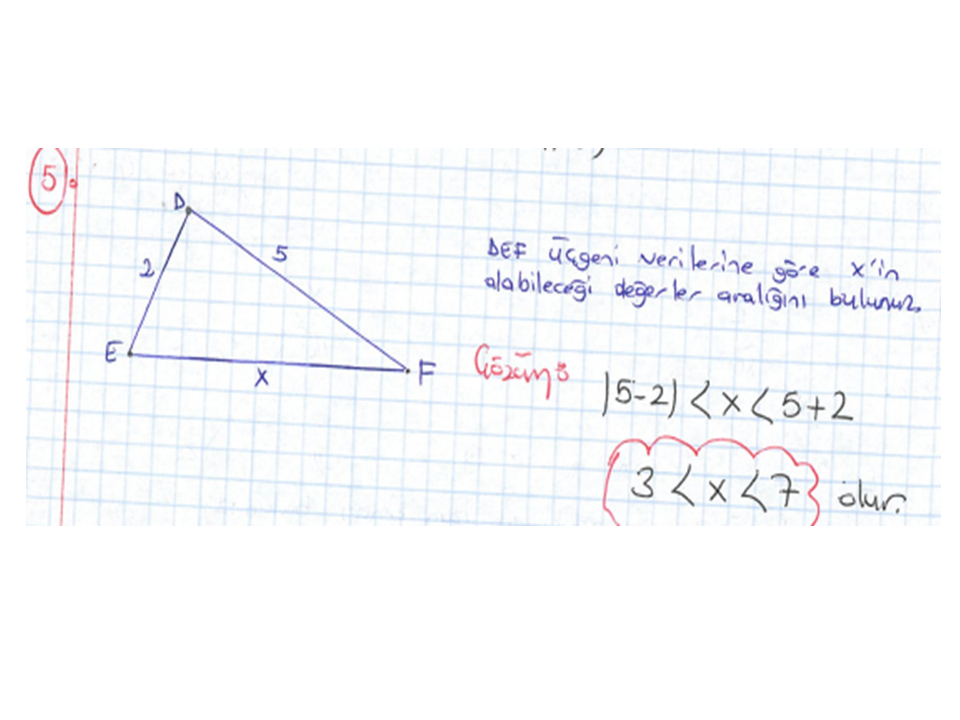 5.
D
2
5
E
x
F
DEF üçgeni verilerine göre x'in
alabileceği değerler aralığını bulunuz.
Çözüm:
|5-2| < x < 5+2
3 < x < 7 olur.